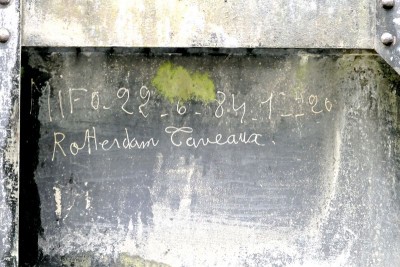 MFO_22_6_84_1__20
Rotterdam Taveaux.